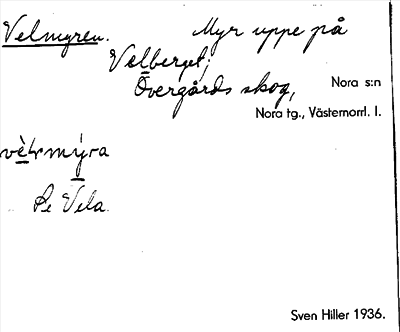 Velmyren. Myr uppe på
Velberget;
Övergårds skog, Nora s:n
Nora tg., Västernorrl. l.
Se Vela.
Sven Hiller 1936.